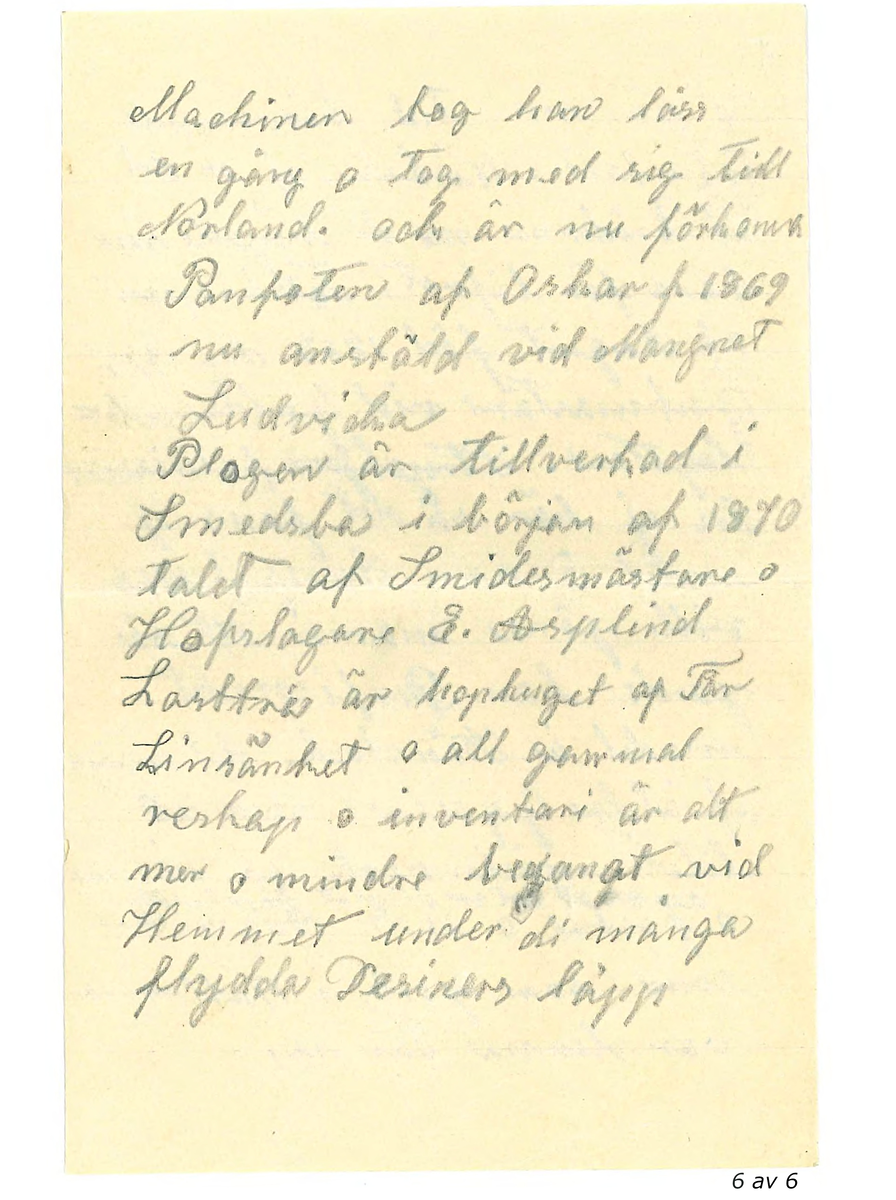 Machinen tog han löss
en gång o Tog med sig till
Norland. och är nu förkomn
Panfoten af Oskar f. 1869
nu anstäld vid Mangnet
Ludvicka
Plogen är tillverkad i
Smedsba i början af 1870
talet af Smidesmästare o
Hofslagare E. Asplind
Lastträ är hophuget af Far
Linsänket o all gammal
reskap o inventari är alt
mer o mindre begangt vid
Hemmet under di många
flydda Desiners läpp
6 av 6